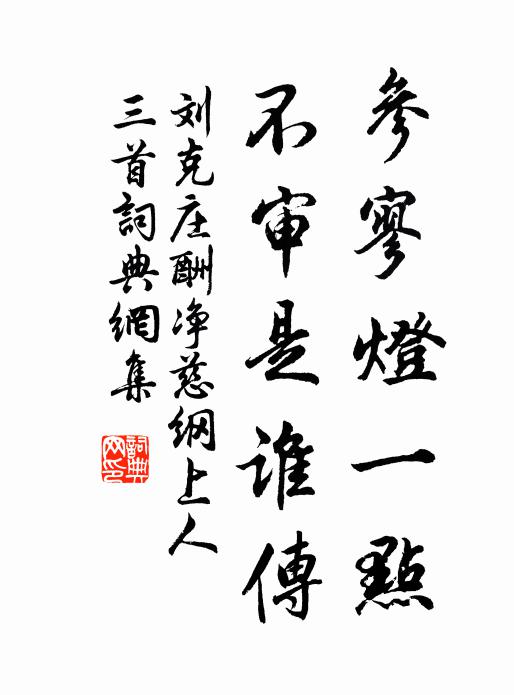 參寥燈一點
不审是誰傳
刘克庄酬净慈纲上人
三首詞典網集
詞典
网印